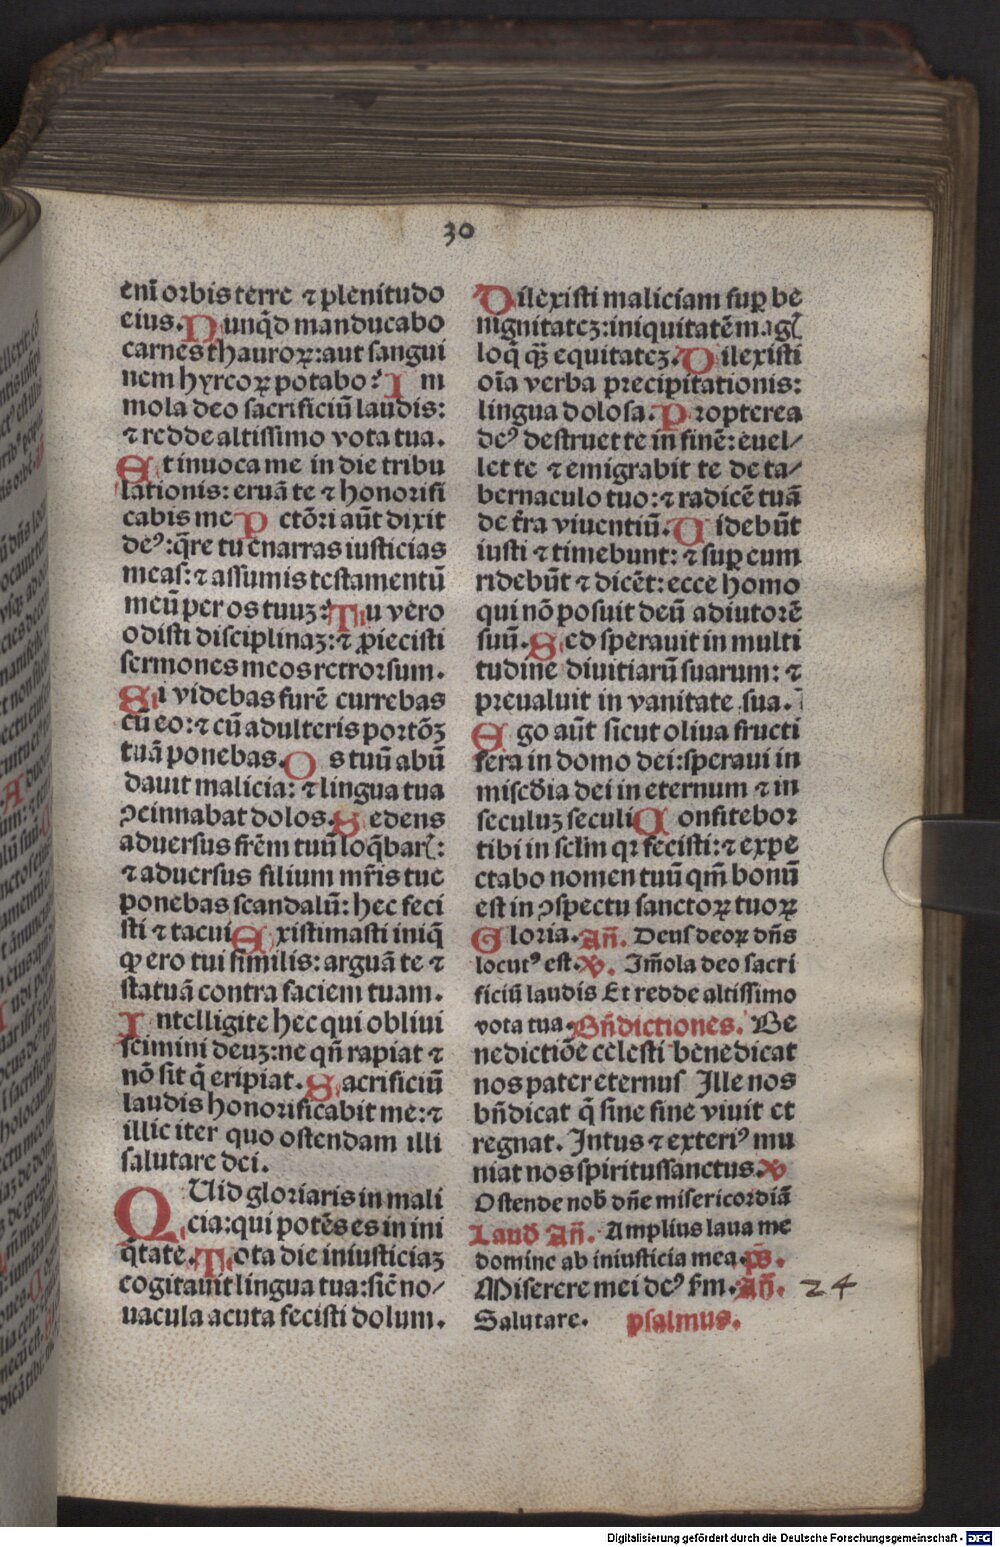 30
enī orbis terre ⁊ plenitudo
eius. Nunq̄d manducabo
carnes thauroꝝ: aut sangui
nem hyrcoꝝ potabo? Im
mola deo sacrificiū laudis:
⁊ redde altissimo vota tua.
Et inuoca me in die tribu
lationis: eruā te ⁊ honorifi
cabis me Pctōri aūt dixit
deꝰ: q̄re tu enarras iusticias
meas: ⁊ assumis testamentū
meū per os tuuꝫ: Tu vero
odisti disciplinaꝫ: ⁊ ꝓiecisti
sermones meos retrorsum.
Si videbas furē currebas
cū eo: ⁊ cū adulteris portōꝫ
tuā ponebas. Os tuū abū
dauit malicia: ⁊ lingua tua
ꝯcinnabat dolos. Sedens
aduersus frēm tuū loq̄barꝭ:
⁊ aduersus filium mr̄is tue
ponebas scandalū: hec feci
sti ⁊ tacui Existimasti iniq̄
ꝙ ero tui similis: arguā te ⁊
statuā contra faciem tuam.
Intelligite hec qui obliui
scimini deuꝫ: ne qn̄ rapiat ⁊
nō sit q̄ eripiat. Sacrificiū
laudis honorificabit me: ⁊
illic iter quo ostendam illi
salutare dei.
QUid gloriaris in mali
cia: qui potēs es in ini
q̄tate. Tota die iniusticiaꝫ
cogitauit lingua tua: sic̄ no/
uacula acuta fecisti dolum.
Dilexisti maliciam suꝑ be
nignitateꝫ: iniquitatē magꝭ
loq̄ qꝫ̄ equitateꝫ. Dilexisti
oīa verba precipitationis:
lingua dolosa. Propterea
deꝰ destruet te in finē: euel/
let te ⁊ emigrabit te de ta/
bernaculo tuo: ⁊ radicē tuā
de t̄ra viuentiū. Videbūt
iusti ⁊ timebunt: ⁊ suꝑ eum
ridebūt ⁊ dicēt: ecce homo
qui nō posuit deū adiutorē
suū. Sed sperauit in multi
tudine diuitiarū suarum: ⁊
preualuit in vanitate sua.
Ego aūt sicut oliua fructi
fera in domo dei: speraui in
miscd̄ia dei in eternum ⁊ in
seculuꝫ seculi Confitebor
tibi in sclm̄ qꝛ fecisti: ⁊ expe
ctabo nomen tuū qm̄ bonū
est in ꝯspectu sanctoꝝ tuoꝝ
Gloria. Añ. Deus deoꝝ dn̄s
locutꝰ est. ℣. Im̄ola deo sacri
ficiū laudis Et redde altissimo
vota tua. Bn̄dictiones. Be
nedictiōe celesti benedicat
nos pater eternus Ille nos
bn̄dicat q̄ sine fine viuit et
regnat. Intus ⁊ exteriꝰ mu
niat nos spiritussanctus. ℣
Ostende nob̄ dn̄e misericordiā
Laud̄ Añ. Amplius laua me
domine ab iniusticia mea. ps̄.
Miserere mei deꝰ s̄m. Añ.
24
Salutare. psalmus.
Digitalisierung gefördert durch die Deutsche Forschungsgemeinschaft - DFG